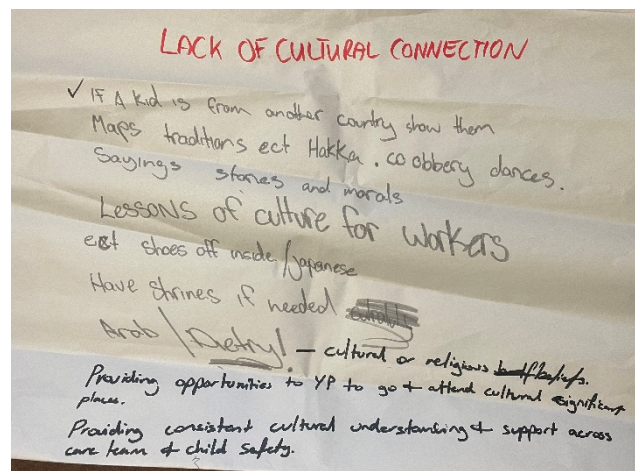 LACK OF CULTURAL CONNECTION
✓ IF A kid is from another country show them
Maps traditions ect Hakka . co obbery dances.
Sayings stories and morals
Lessons of culture for workers
ect shoes off inside / japanese
Have shrines if needed
Arab / Dietry! – cultural or religious beliefs.
Providing opportunities to YP to go + attend cultural significant
places.
Providing consistent cultural understanding + support across
care team + child safety.